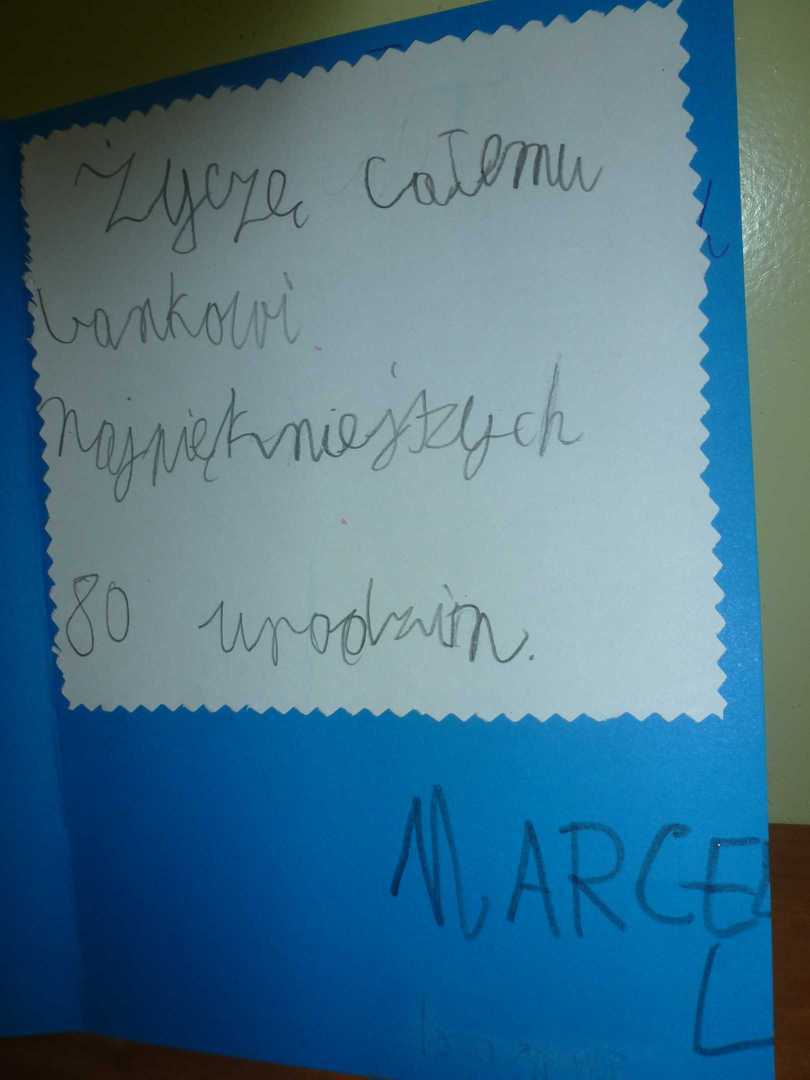 Życzę całemu
bankowi
najpiękniejszych
80 urodzin.
MARCEL
L